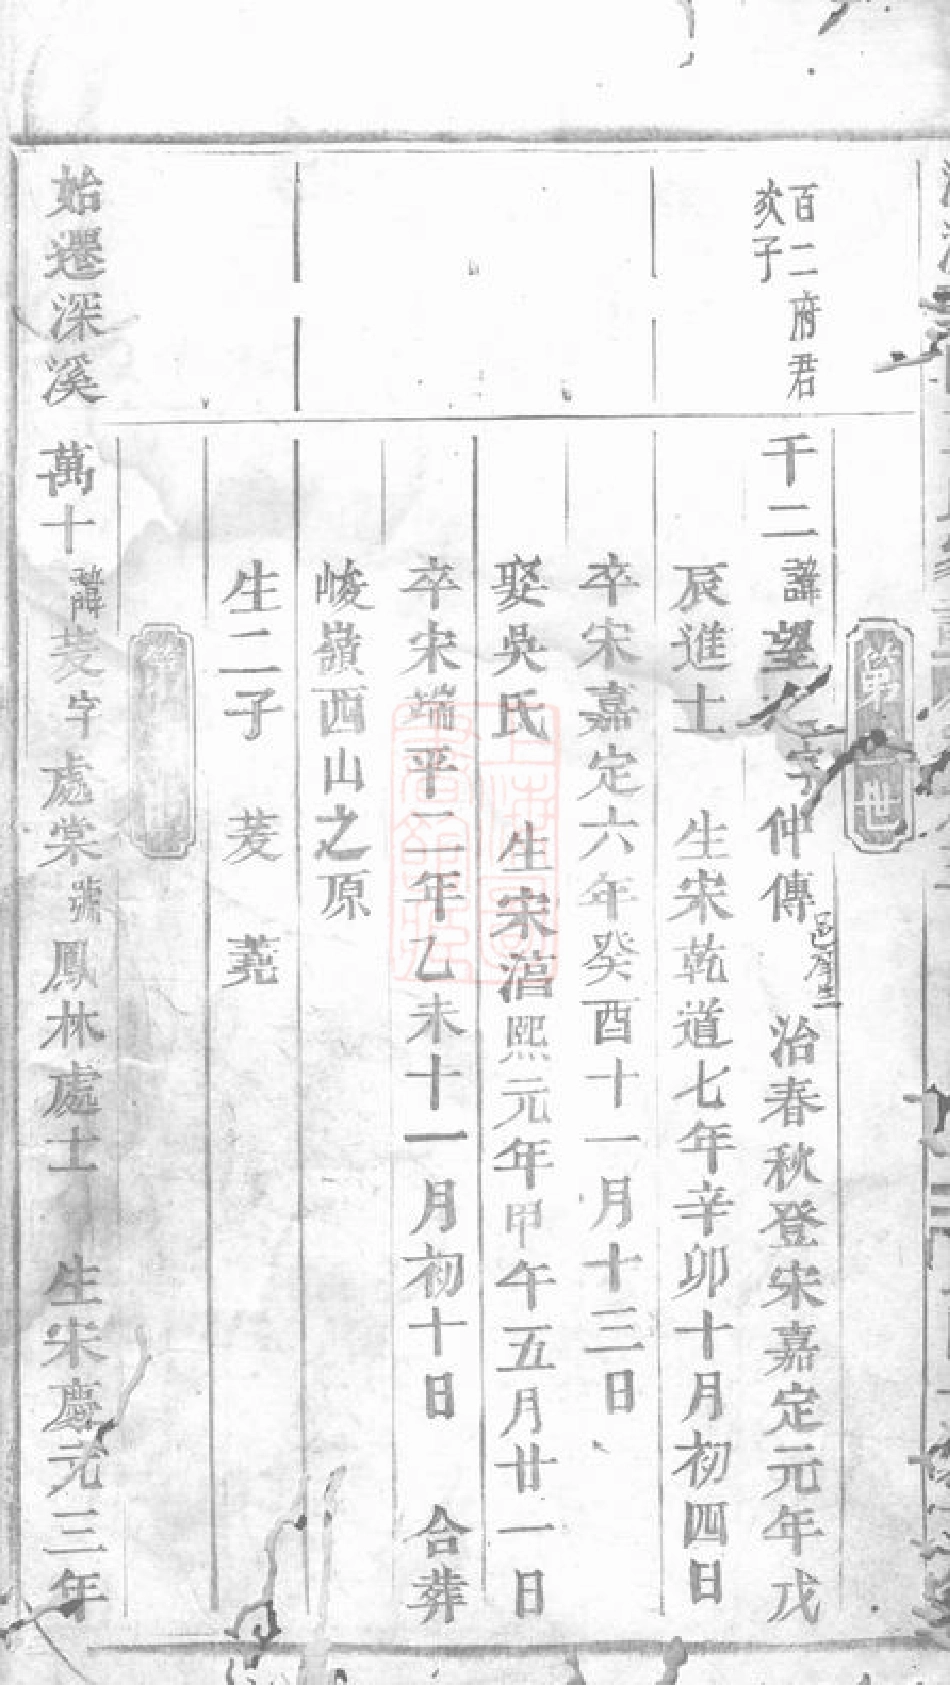 第 世
百二府君
狄子
千二諱望 字仲傳 邑庠生 治春秋登宋嘉定元年戊
辰進士 生宋乾道七年辛卯十月初四日
卒宋嘉定六年癸酉十一月十三日
娶吳氏 生宋淳熙元年甲午五月廿一日
卒宋端平二年乙未十一月初十日 合葬
峻嶺西山之原
生二子 茇 蕘
始遷深溪
萬十諱茇字處棠號鳳林處士 生宋慶元三年